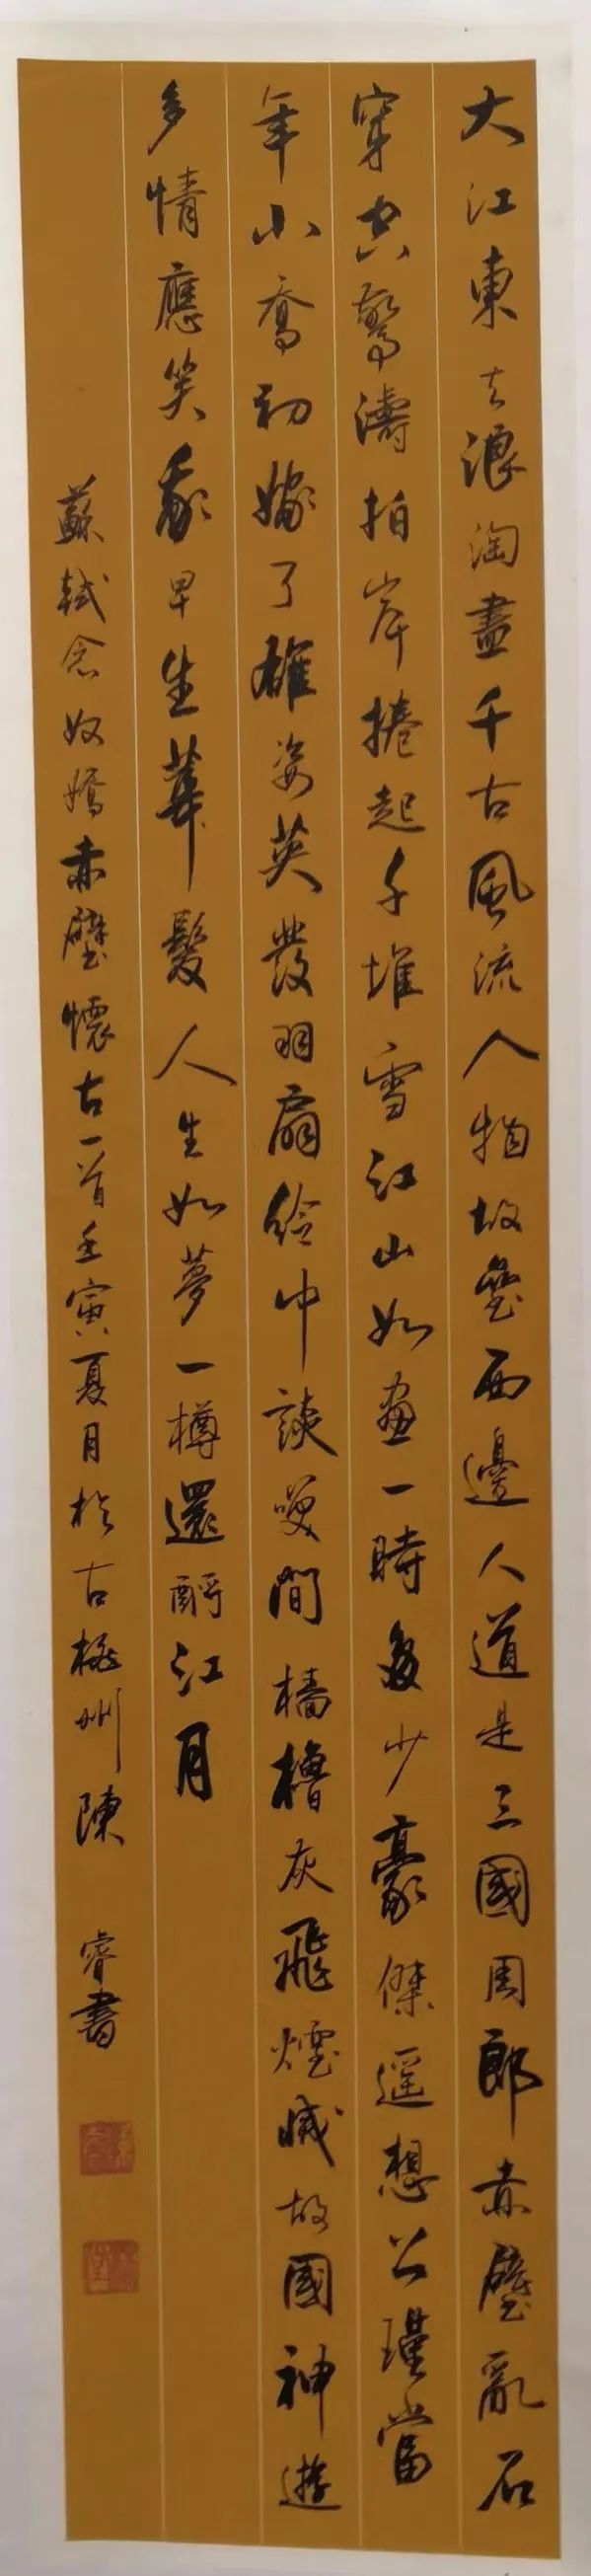 大江東去浪淘盡千古風流人物故壘西邊人道是三國周郎赤壁亂石
穿空驚濤拍岸捲起千堆雪江山如畫一時多少豪傑遥想公瑾當
年小喬初嫁了雄姿英發羽扇綸中談笑間檣櫓灰飛煙滅故國神遊
多情應笑我早生華髮人生如夢一樽還酹江月
蘇軾念奴嬌赤壁懷古一首壬寅夏月於古梅州陳睿書